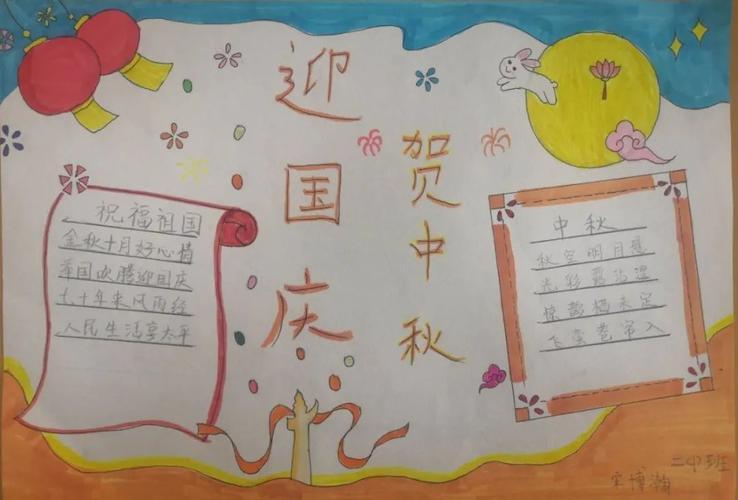 迎国庆
贺中秋
祝福祖国
金秋十月好心情
举国欢腾迎国庆
七十年来风雨经
人民生活享太平
中秋
秋空明月悬
光彩露沾湿
惊鹊栖未定
飞萤卷帘入
二(4)班
宋博瀚